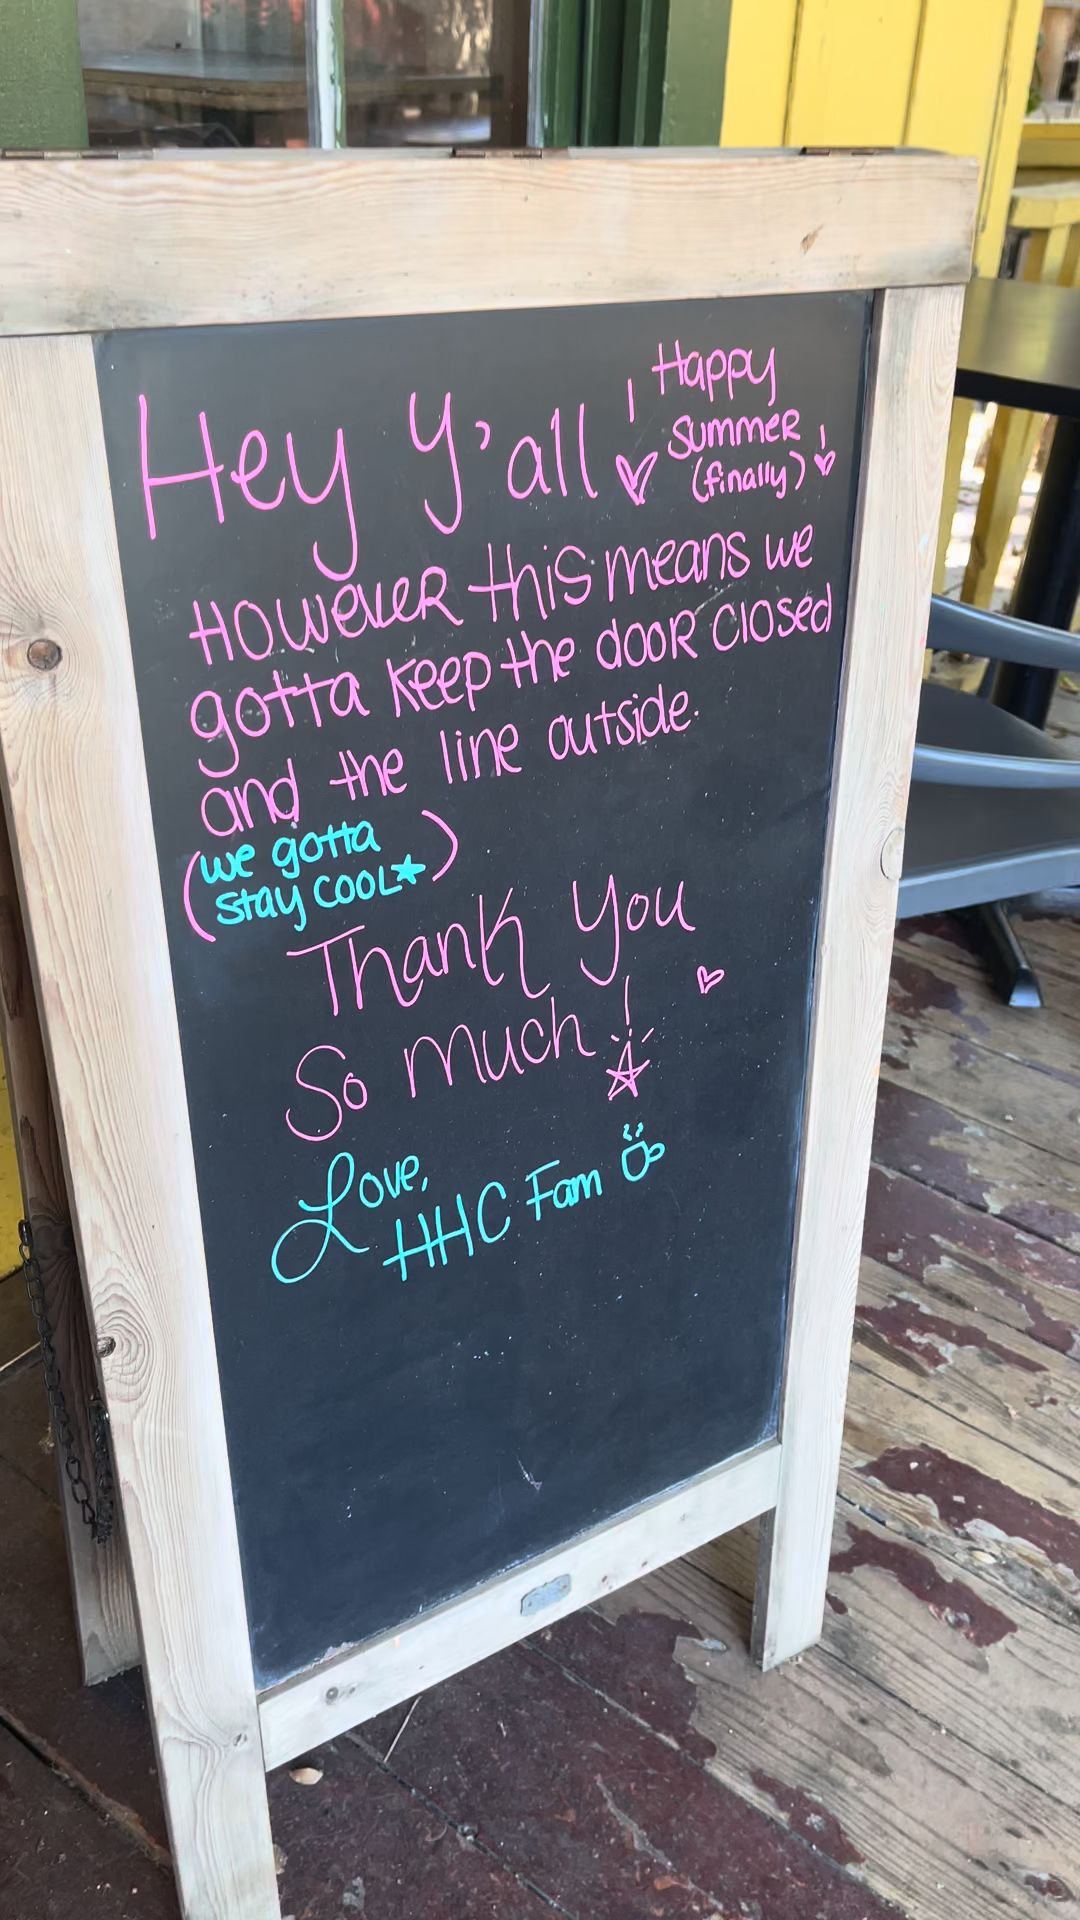 Hey Y'all!
Happy
Summer
(finally)!
However this means we
gotta keep the door closed
and the line outside.
(we gotta
stay cool★)
Thank You
So much!
Love,
HHC Fam